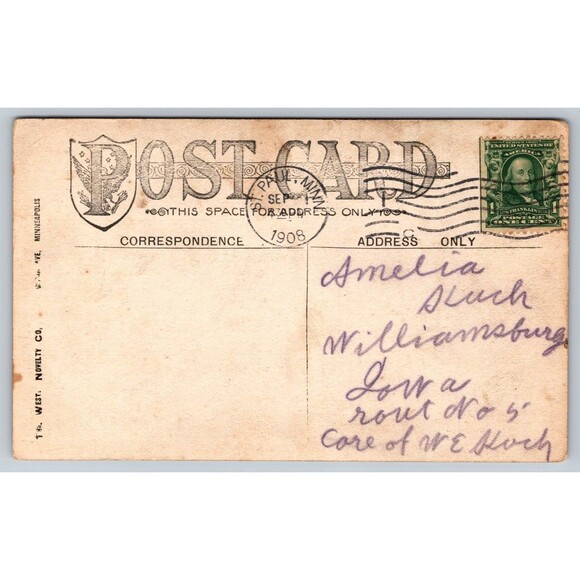 POST CARD
THIS SPACE FOR ADDRESS ONLY
ST. PAUL, MINN.
SEP 1
1908
UNITED STATES OF AMERICA
FRANKLIN
POSTAGE
ONE CENT
CORRESPONDENCE
ADDRESS ONLY
Amelia
Koch
Williamsburg
Iowa
rout No 5
Care of W E Koch
WEST. NOVELTY CO, AVE, MINNEAPOLIS